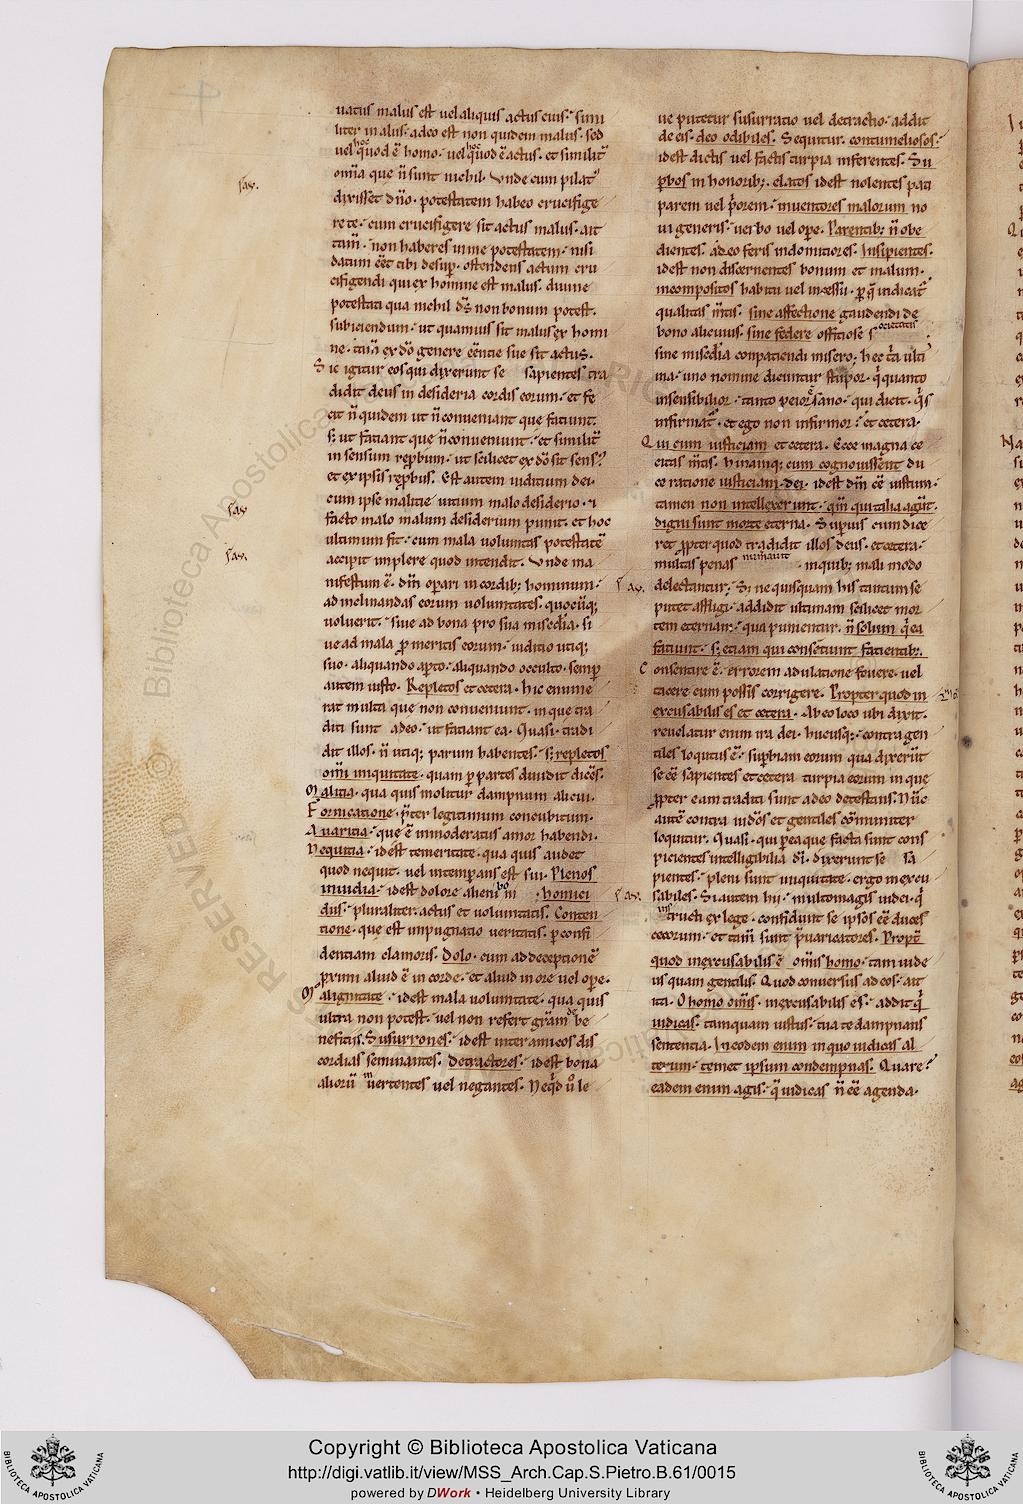 uatus malus est uel aliquis actus eius. simi
liter malus. adeo est non quidem malus. sed
uel hoc quod ē homo. uel hoc quod ē actus. et similit᷑
om̄ia que n̄ sunt nichil. Vnde cum pilat᷒
dixisset dn̄o. potestatem habeo crucifige
re te. cum crucifigere sit actus malus. ait
tam̄. non haberes in me potestatem. nisi
datum eēt tibi desup̱. ostendens actum cru
cifigendi qui ex homine est malus. diuine
potestati qua nichil dn̄s non bonum potest.
subiciendum. ut quamuis sit malus ex homi
ne. tam̄ ex dō genere eēntie sue sit actus.
Sic igitur eos qui dixerunt se sapientes tra
didit deus in desideria cordis eorum. et fe
cit n̄ quidem ut n̄ conueniant que faciunt.
sꝫ ut faciant que n̄ conueniunt. et similit᷑
in sensum rep̱bum. ut scilicet ex dō sit sens᷒.
et ex ipsis rep̱bus. Est autem iuditium dei.
cum ipse malitie uitium malo desiderio. ⁊
facto malo malum desiderium punit. et hoc
ultimum fit. cum mala uoluntas potestatē
accipit implere quod intendit. Vnde ma
nifestum ē. dm̄ op̱ari in cordibꝫ hominum.
ad inclinandas eorum uoluntates. quocūqꝫ
uoluerit. siue ad bona pro sua misc̄dia. si
ue ad mala p̱ meritis eorum. iuditio utiqꝫ
suo. aliquando ap̱to. aliquando occulto. semp̱
autem iusto. Repletos et cetera. hic enume
rat multa que non conueniunt. in que tra
diti sunt adeo. ut faciant ea. Quasi. tradi
dit illos. n̄ utiqꝫ parum habentes. sꝫ repletos
om̄i iniquitate. quam p̱ partes diuidit dicēs.
Malitia. qua quis molitur dampnum alicui.
Fornicatione. p̄ter legitimum concubitum.
Auaritia. que ē inmoderatus amor habendi.
Nequitia. idest temeritate. qua quis audet
quod nequit. uel intemp̱ans est sui. Plenos
inuidia. idest dolore alieni bo
ni. homici
diis. pluraliter. actus et uoluntatis. Conten
tione. que est inpugnatio ueritatis. p̱ confi
dentiam clamoris. Dolo. cum ad deceptionē
p̱ximi aliud ē in corde. et aliud in ore uel ope.
Malignitate. idest mala uoluntate. qua quis
ultra non potest. uel non refert gr̄am de be
neficiis. Susurrones. idest inter amicos dis
cordias seminantes. Detractores. idest bona
aliorū inuertentes uel negantes. Neqd̄ u᷎ le
ue putetur susurratio uel detractio. addit
de eis. deo odibiles. Sequitur. contumeliosos.
idest dictis uel factis turpia inferentes. Su
p̱bos in honoribꝫ. elatos idest nolentes pati
parem uel p̄orem. inuentores malorum no
ui generis. uerbo uel ope. Parentibꝫ n̄ obe
dientes. adeo feris indomitiores. Insipientes.
idest non discernentes bonum et malum.
incompositos habitu uel incessu. p̱ q̄ indicat᷑
qualitas m̄tis. sine affectione gaudendi de
bono alicuius. sine federe offitiose societatis
sine misc̄dia conpatiendi misero; hec t̄a ulti
ma. uno nomine dicuntur stupor. qui quanto
insensibilior. tanto peior ē sano. qui dicit. q̄s
infirmat᷑. et ego non infirmor; et cetera.
Qui cum iusticiam et cetera. Ecce magna ce
citas m̄tis. Namqꝫ cum cognouissent du
ce ratione iusticiam dei. idest dm̄ eē iustum.
tamen non intellexerunt. qm̄ qui talia agūt.
digni sunt morte eterna. Superius cum dice
ret p̱pter quod tradidit illos deus. et cetera.
multas penas numerauit in quibꝫ mali modo
delectantur; Si ne quisquam his tantum se
putet affligi. addidit ultimam scilicet mor
tem eternam. qua punientur. n̄ solum q̄ ea
faciunt. sꝫ etiam qui consētiunt facientibꝫ.
Consentire ē. errorem adulatione fouere. uel
tacere cum possis corrigere. Propter quod in
excusabilis es et cetera. Ab eo loco ubi dixit.
reuelatur enim ira dei. hucusqꝫ. contra gen
tiles loqutus ē. sup̱biam eorum qua dixerūt
se eē sapientes et cetera turpia eorum in que
p̱pter eam traditi sunt adeo detestans. Nūc
autē contra iudōs et gentiles cōmuniter
loquitur. Quasi. qui p̱ ea que facta sunt cons
picientes intelligibilia di᷎. dixerunt se sa
pientes. pleni sunt iniquitate. ergo inexcu
sabiles. Si autem hii. multo magis iudei. q̄
instructi ex lege. confidunt se ipsos eē duces
cecorum. et tam̄ sunt p̄uaricatores. Propt᷑
quod inexcusabilis ē om̄is homo. tam iude
us quam gentilis. Quod conuersus ad eos. ait
ita. O homo om̄is. inexcusabilis es. addit q̄
iudicas. tamquam iustus. tua te dampnans
sententia. In eodem enim in quo iudicas al
terum. temet ipsum condempnas. Quare?
eadem enim agis. q̄ iudicas n̄ eē agenda.
Copyright © Biblioteca Apostolica Vaticana
http://digi.vatlib.it/view/MSS_Arch.Cap.S.Pietro.B.61/0015
powered by DWork • Heidelberg University Library